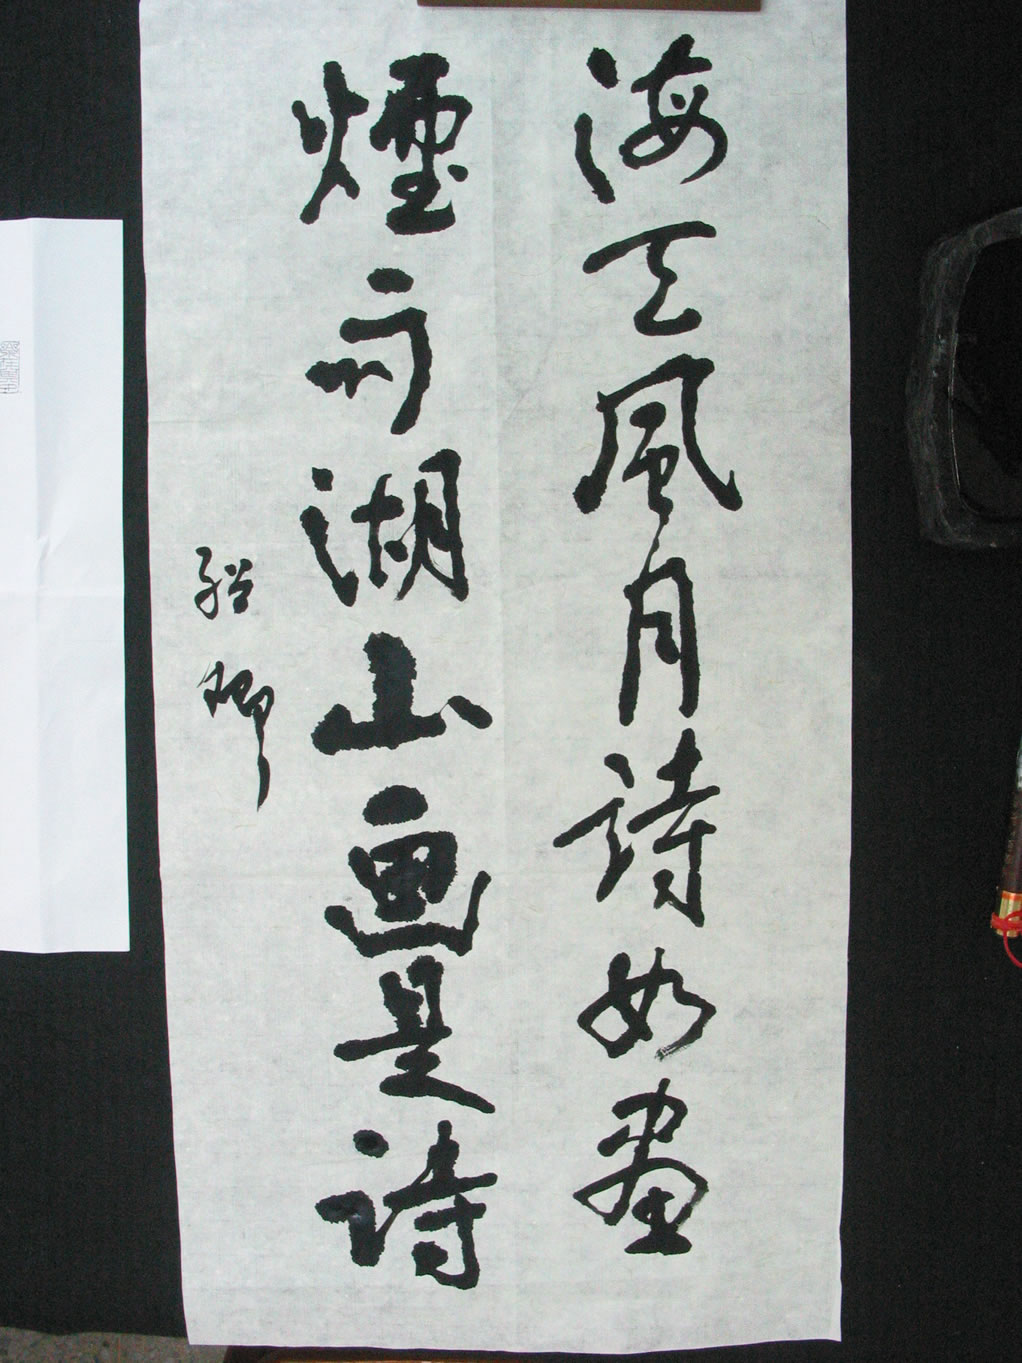 海天風月詩如畫
煙雨湖山画是詩